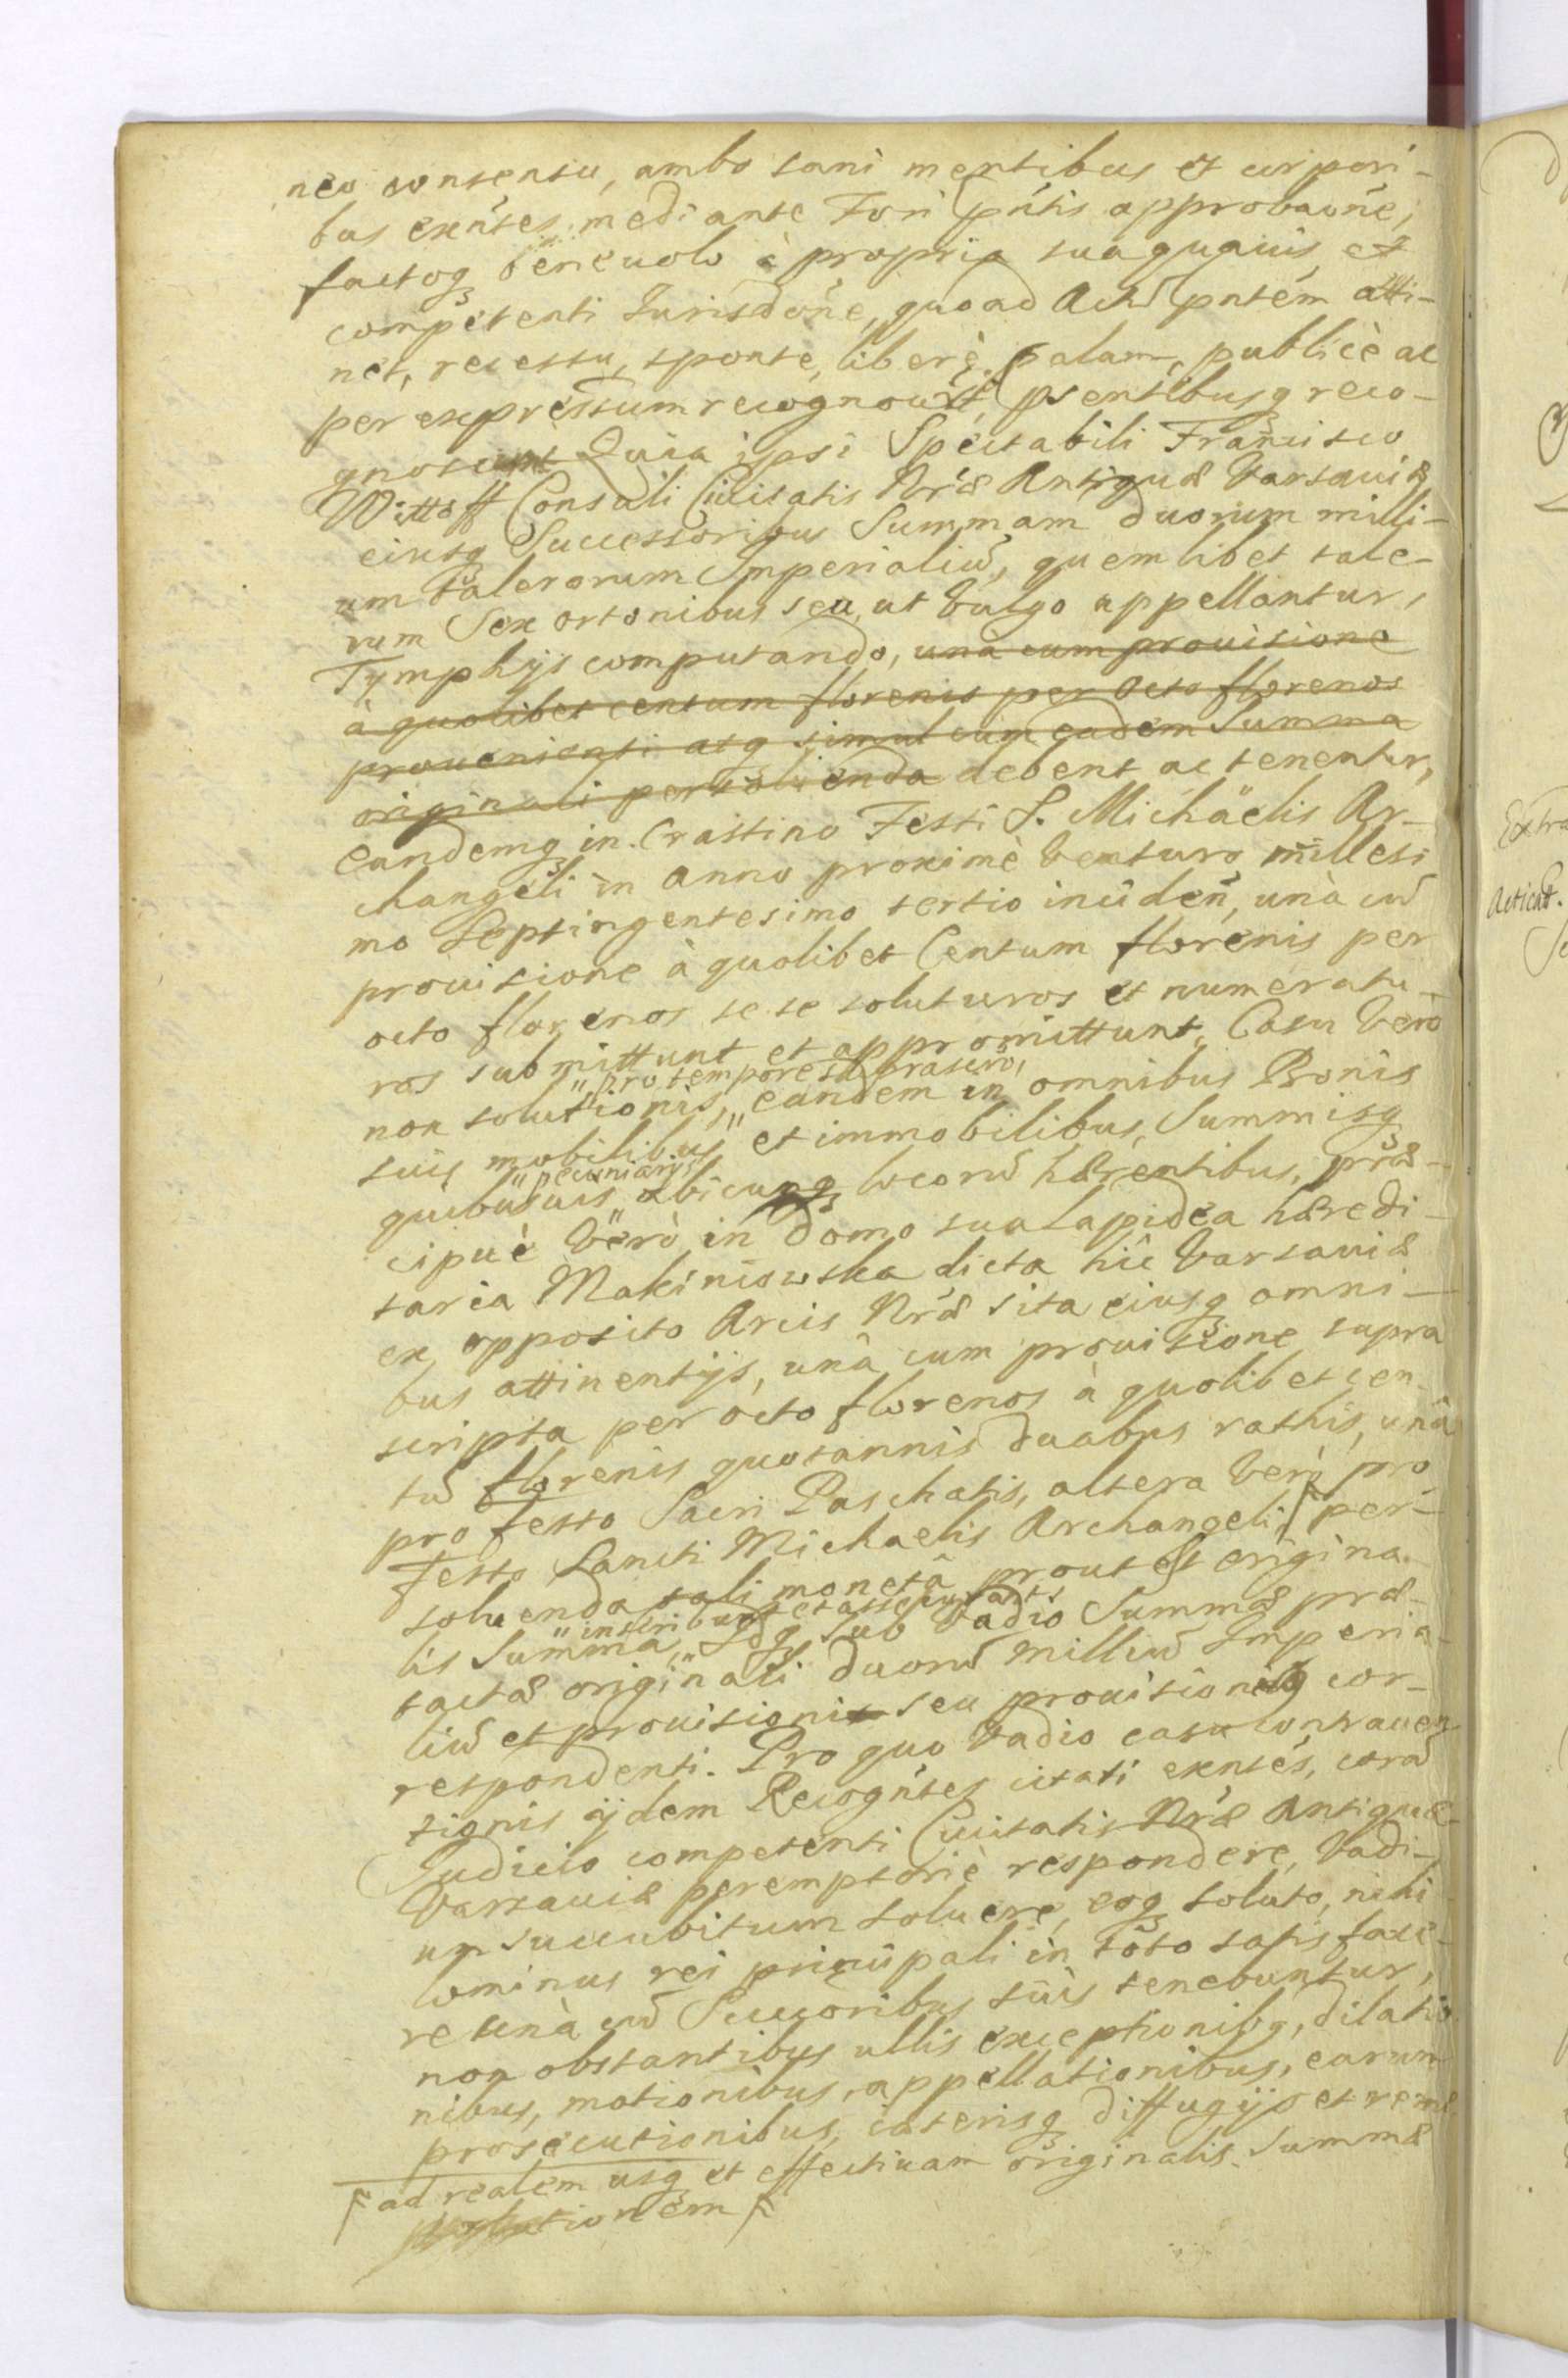 neo consensu, ambo sani mentibus et corpori-
bus exñtes, mediante Fori pñtis approbaoñe,
factoq benevolo à propria sua quavis et
competenti Jurisdoñe, quoad Actũ pntém atti-
net, recessu, sponte, liberè, palam, publicè ac
per expressum recognoverũt, psentibusq reco-
gnoscunt Quia ipsi Spectabili Francisco
Wittoff Consuli Civitatis Nrǽ Antiquæ Varsaviæ
eiusq Successoribus Summam duorum milli-
um talerorum Imperialiũ, quemlibet tale-
rum Sex ortonibus seu, ut vulgo appellantur,
Tymphijs computando, unà cum provisione
à quolibet centum florenis per octo florenos
provenienti atq simul cum eadem Summa
originali persolvenda debent ac tenentur,
eandemq in Crastino Festi S. Michäelis Ar-
changeli in anno proximè venturo millesi
mo Septingentesimo tertio inciden, unà cũ
provisione à quolibet Centum florenis per
octo florenos sese soluturos et numeratu-
ros submittunt et appromittunt. Casu verò
non solutionis, eandem in omnibus Bonis
" pro tempore suprascro,
suis mobilibus et immobilibus, Summisq
quibusvis ubicunq locorũ hærentibus, præ-
" pecuniarijs
cipuè verò in domo sua lapidea hæredi-
taria Makiniowska dicta hîc Varsaviæ
ex opposito Arcis Nrǽ sita eiusq omni-
bus attinentijs, unà cum provisione supra
scripta per octo florenos à quolibet cen-
tũ florenis quotannis duabus rathis, unâ
pro festo Sacri Paschatis, altera verò pro
Festo Sancti Michaelis Archangeli, per-
solvenda tali monetâ prout est origina-
lis Summa, Idq sub vadio Summæ præ-
" inscribunt et assecurant
tactæ originali duorũ milliũ Imperia-
liũ et provisionis seu provisionibq cor-
respondenti. Pro quo vadio casu contraven
tionis ijdem Recogñtes citati exntes, corã
Judicio competenti Civitatis Nrǽ Antiquæ
Varsaviæ peremptoriè respondere, vadi-
um succubitum solvere, eoq soluto, nihi
lominus rei principali in toto satisface-
re unà cũ Succoribus suis tenebuntur,
non obstantibus ullis exceptionibq, dilatio
nibus, motionibus, appellationibus, earum
prosecutionibus, cæterisq diffugijs et reme
ad realem usq et effectivam originalis Summæ
solutionem